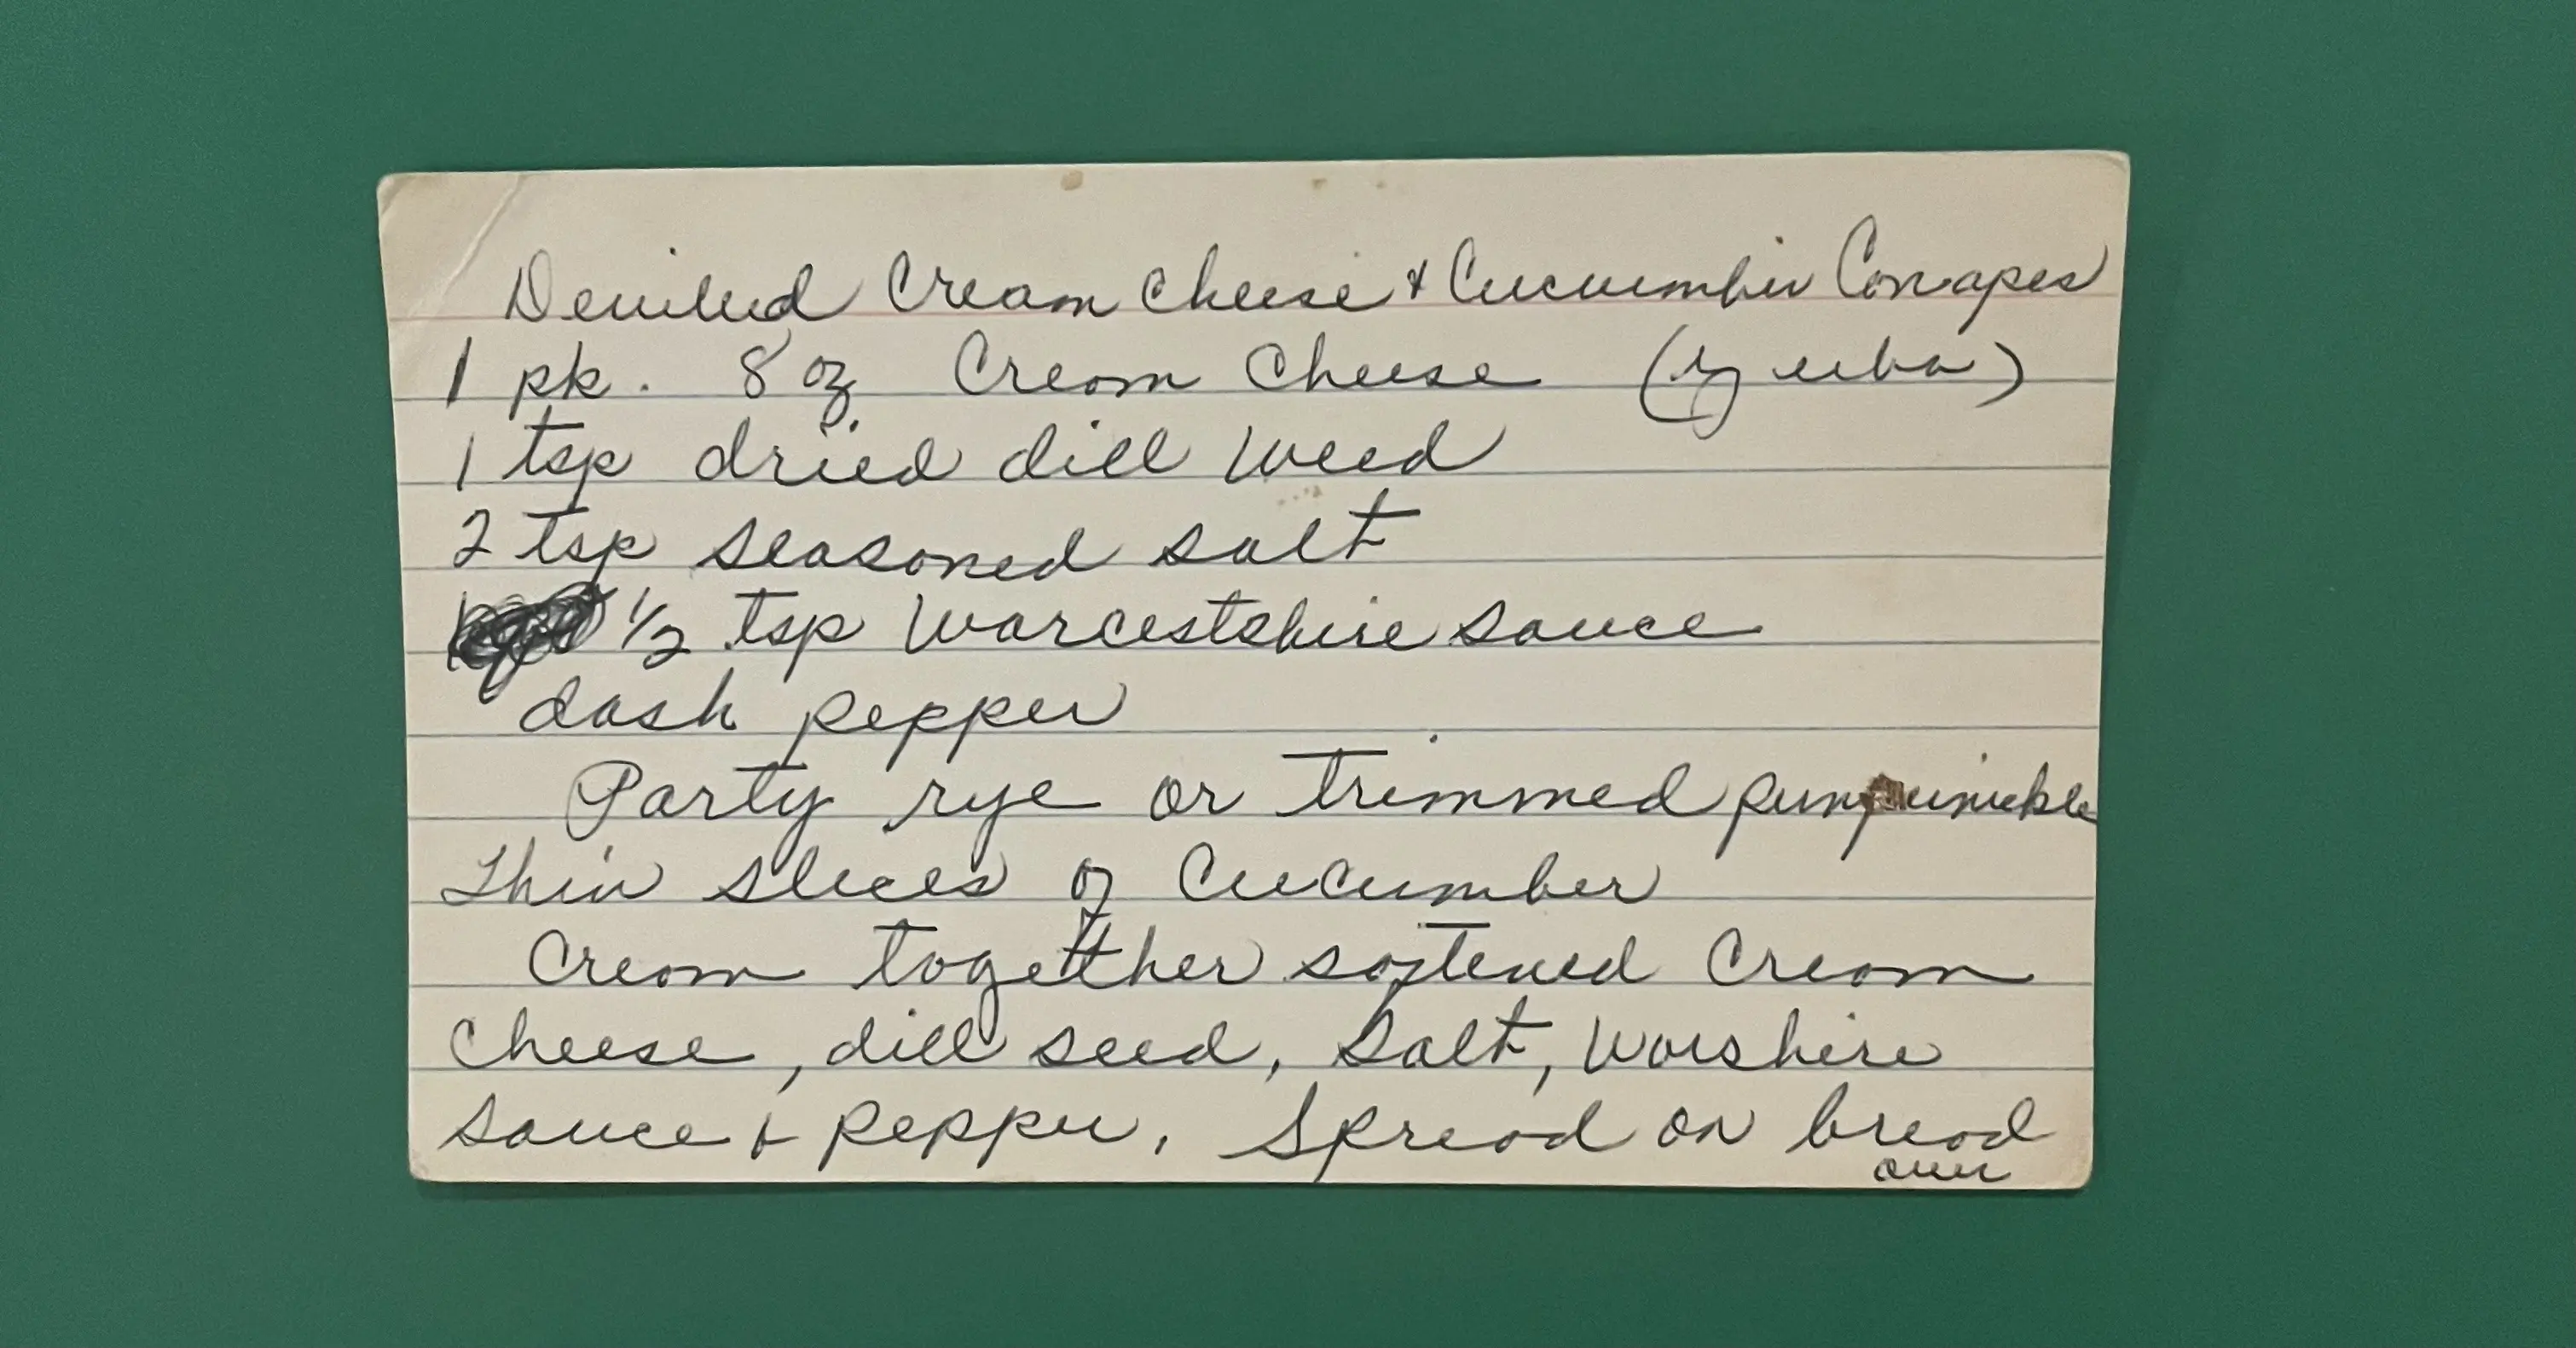 Deviled Cream Cheese & Cucuumber Conapes
1 pk. 8 oz Cream Cheese
1 tsp dried dill weed
2 tsp seasoned salt
1/2 tsp Worcestshire sauce
dash pepper
Party rye or trimmed
Thin slices of Cucumber
Cream together softened Cream
Cheese, dill seed, Salt, Worshire
sauce & pepper. Spread on bread
over